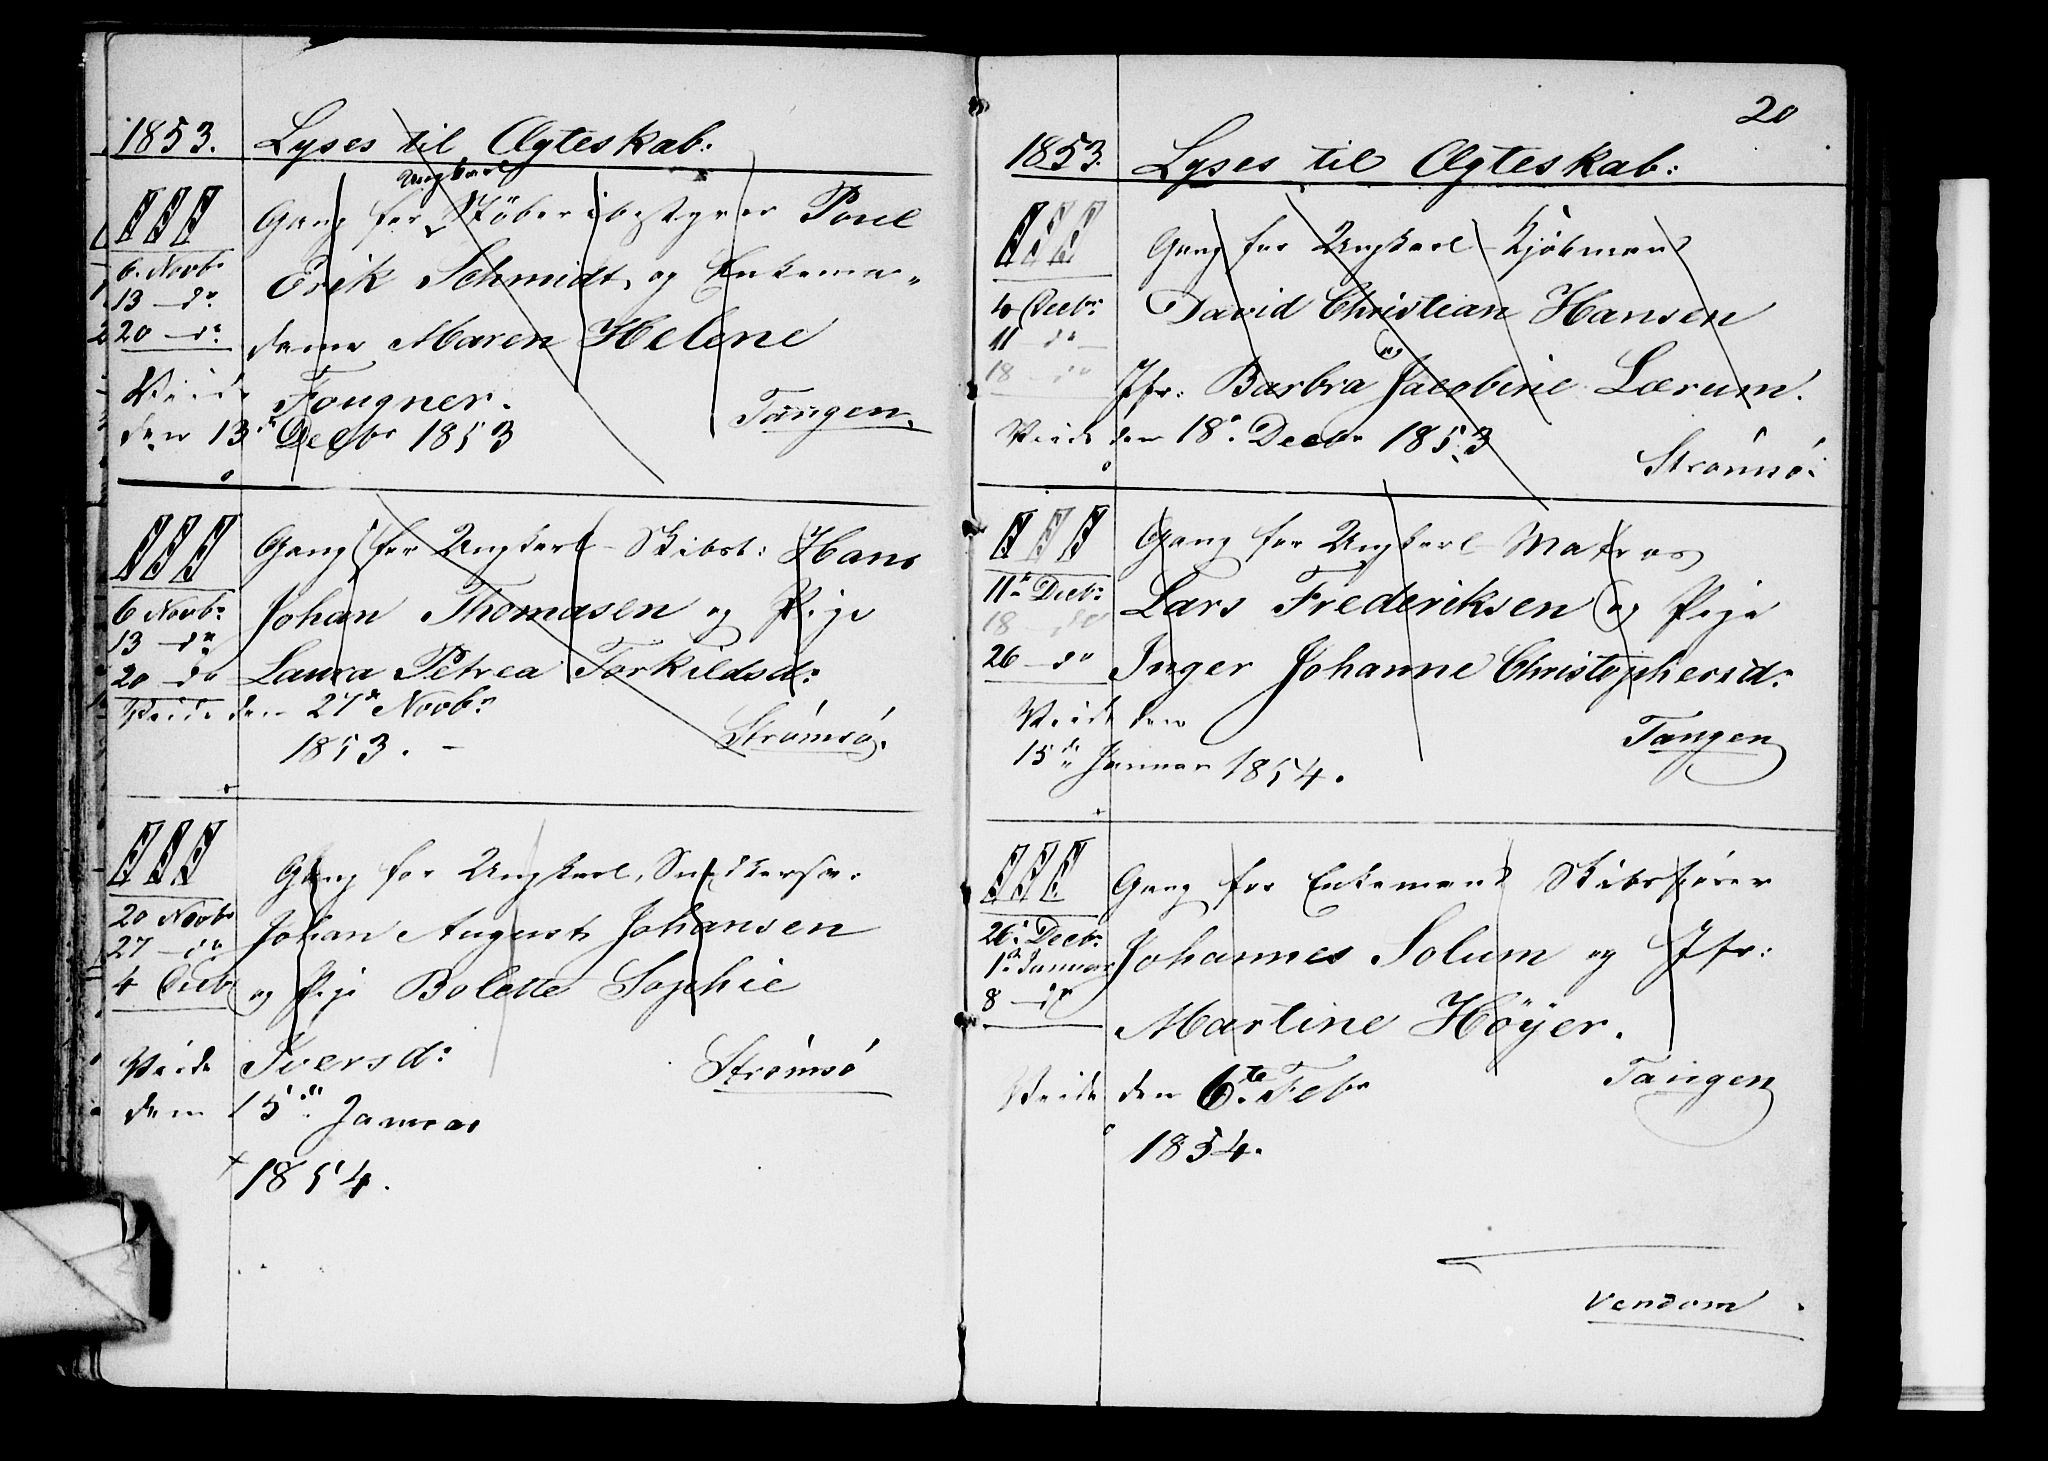 1853. Lyses til Ægteskab:
III Gang for Ungkarl Støberibestyrer Poul
6. Novbr Erik Schmidt og Enkema-
13 do
20 do dame Maren Helene
Viede Fougner. Tangen.
den 13de Decbr 1853
III Gang for Ungkarl Skibst: Hans
6 Novbr Johan Thomasen og Pige
13 do
20 do Laura Petrea Torkildsd:
Viede den 27de Novbr Strømsø.
1853. -
III Gang for Ungkarl, Snedkersv.
20 Novbr Johan August Johansen
27 do
4 Decbr og Pige Bolette Sophie
Viede Iversd: Strømsø
den 15de Januar
1854.
20
1853. Lyses til Ægteskab:
III Gang for Ungkarl Kjøbmand
4 Decbr David Christian Hansen
11 do og
18 do Jfr: Barbra Jacobine Lærum.
Viede den 18de Decbr 1853 Strømsø.
III Gang for Ungkarl Matros
11te Decbr Lars Frederiksen og Pige
18 do
26 do Inger Johanne Christophersd:
Viede den Tangen
15de Januar 1854.
III Gang for Enkemand Skibsfører
26. Decbr Johannes Solum og Jfr:
1ste Januar
8 do Martine Höÿer.
Viede den 6te Febr Tangen
1854.
Vendom